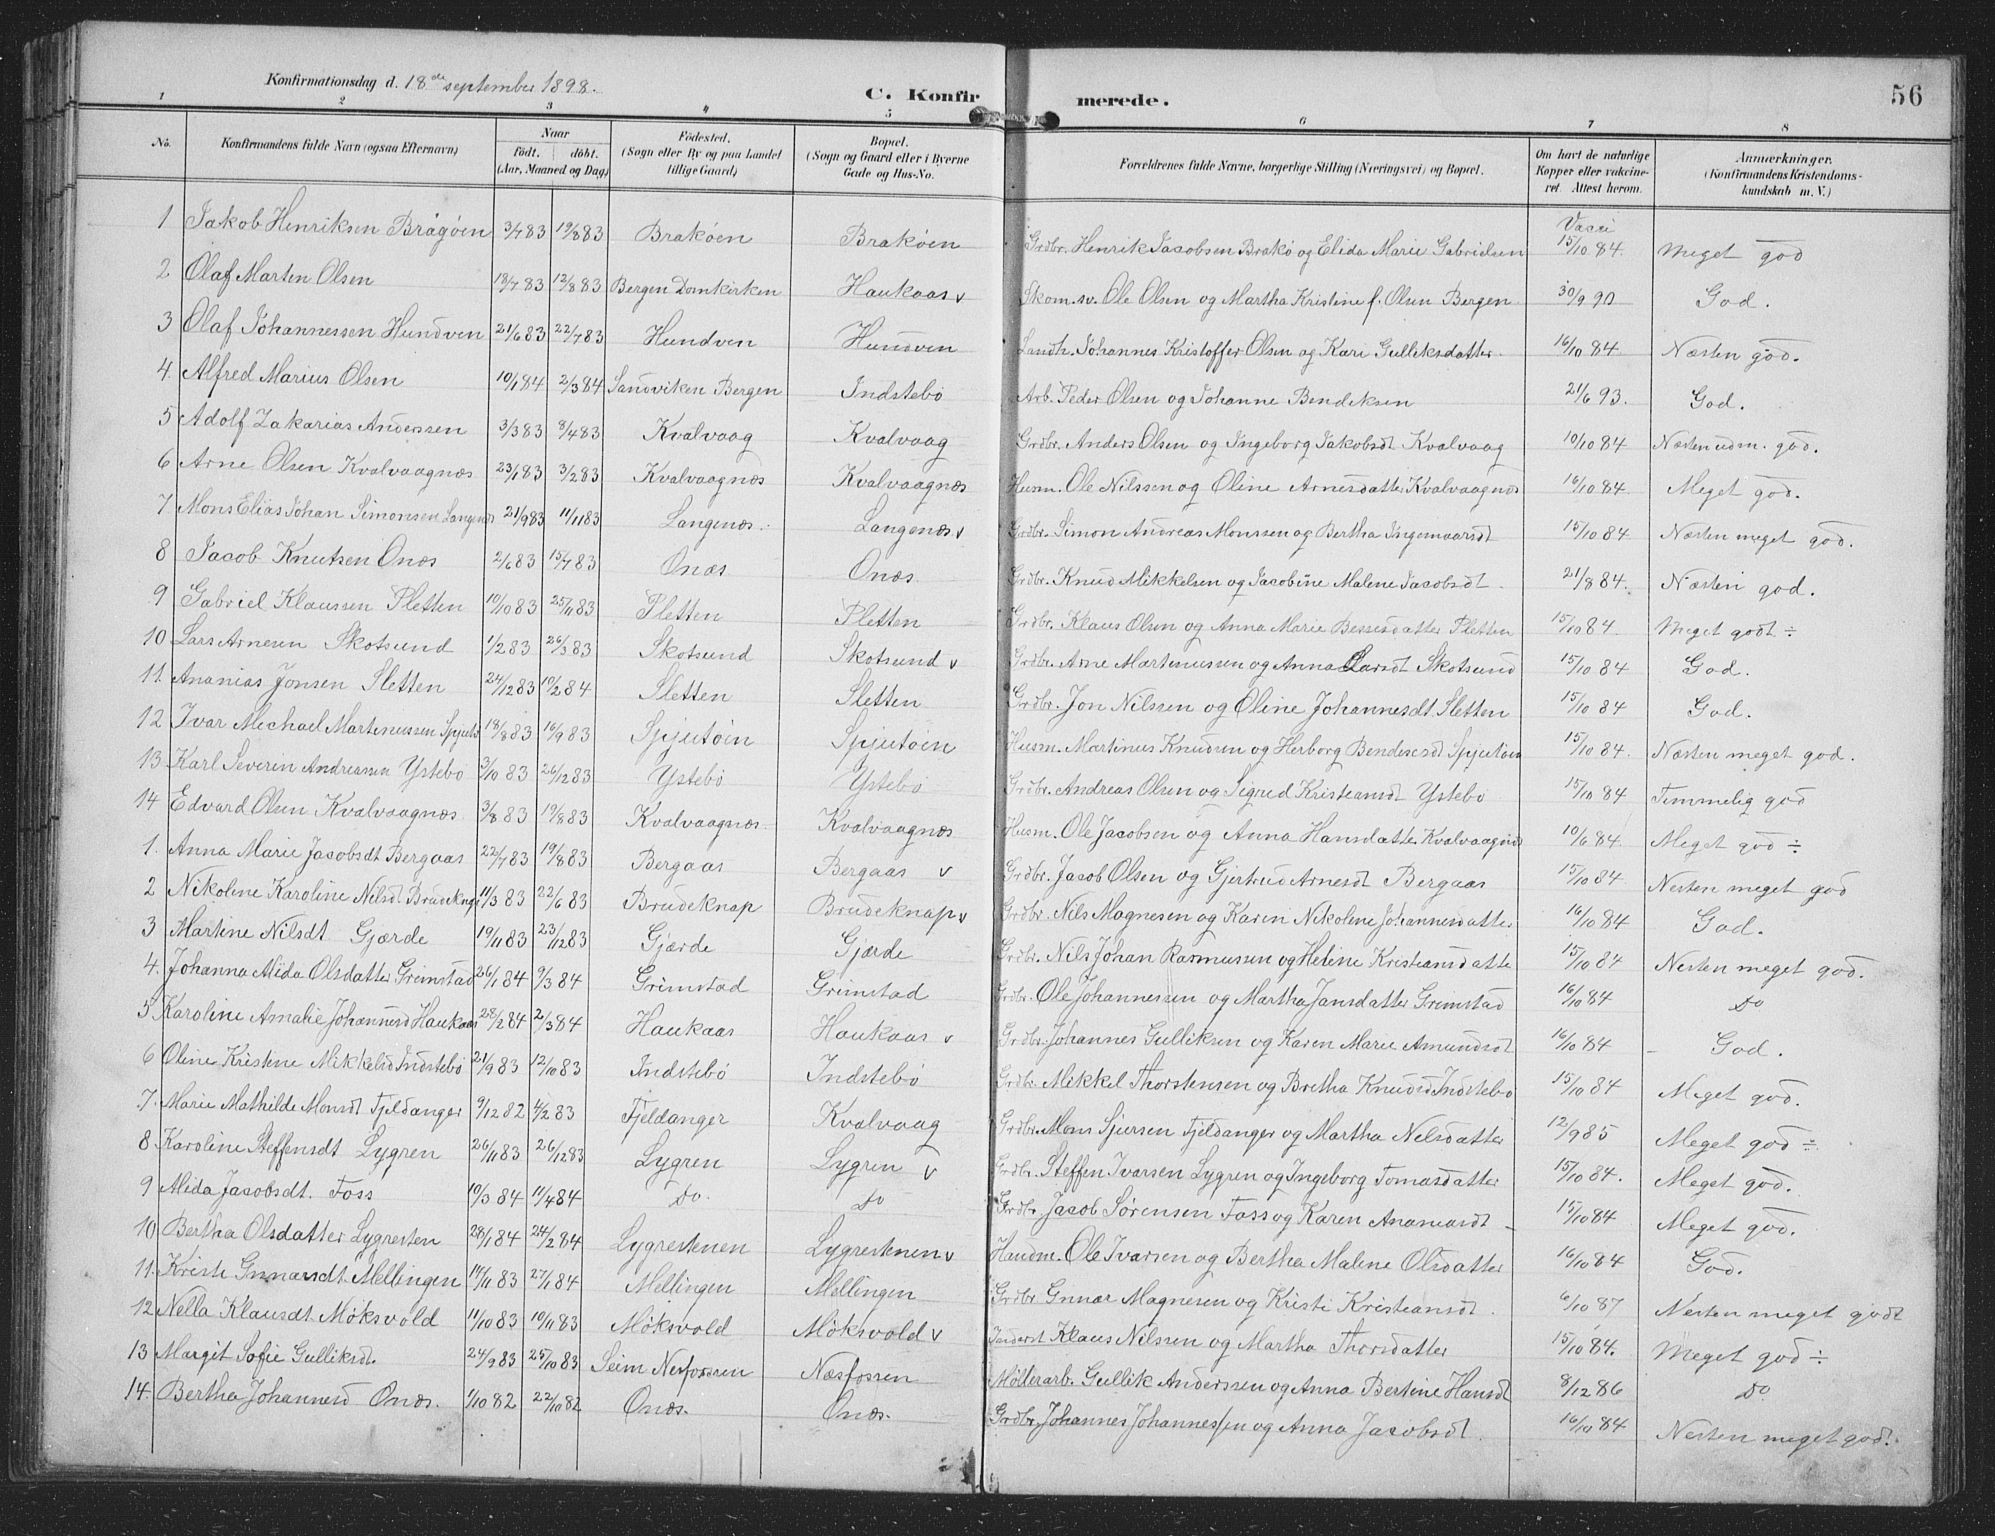 Konfirmationsdag d. 18de september 1898.
C. Konfirmerede.
56
1 2 3 4 5 6 7 8
No. | Konfirmandens fulde Navn (ogsaa Efternavn) | Naar födt. döbt. (Aar, Maaned og Dag) | Födested. (Sogn eller By og paa Landet tillige Gaard) | Bopæl. (Sogn og Gaard eller i Byerne Gade og Hus-No. | Forældrenes fulde Navne, borgerlige Stilling (Næringsvei) og Bopæl. | Om havt de naturlige Kopper eller vakcineret. Attest herom. | Anmærkninger. (Konfirmandens Kristendomskundskab m. V.)
1 Jakob Henriksen Brågöen 3/7 83 19/8 83 Braköen Braköen Grdbr. Henrik Jacobsen Brakö og Elida Marie Gabrielsen Vacci 15/10 84. Meget god
2 Olaf Marten Olsen 13/7 83 12/8 83 Bergen Domkirken Haukaas v Skom. sv. Ole Olsen og Martha Kristine f. Olsen Bergen 30/9 90 God.
3 Olaf Johannessen Hundven 21/6 83 22/7 83 Hundven Hundven Landh. Johannes Kristoffer Olsen og Kari Gulliksdatter 16/10 84. Næsten god.
4. Alfred Marius Olsen 10/1 84 2/3 84 Sandviken Bergen Indstebö Arb. Peder Olsen og Johanne Bendiksen 21/6 93. God.
5 Adolf Zakarias Anderssen 3/3 83 8/4 83 Kvalvaag Kvalvaag Grdbr. Anders Olsen og Ingeborg Jakobsdt Kvalvaag 10/10 84 Næsten udm. god.
6 Arne Olsen Kvalvaagnæs 23/1 83 3/2 83 Kvalvaagnæs Kvalvaagnæs Husm. Ole Nilssen og Oline Arnesdatter Kvalvaagnæs 16/10 84. Meget god.
7 Mons Elias Johan Simonsen Langenæs 21/9 83 11/11 83 Langenæs. Langenæs v Grdbr. Simon Andreas Monssen og Bertha Ingemaarsdt 15/10 84 Næsten meget god.
8 Jacob Knutsen Onæs 2/6 83 15/7 83 Onæs Onæs. Grdbr. Knud Mikkelsen og Jacobine Malene Jacobsdt. 21/8 84. Næsten god.
9 Gabriel Klaussen Sletten 10/10 83 25/11 83 Sletten Sletten Grdbr. Klaus Olsen og Anna Marie Bessesdatter Sletten 15/10 84. Meget godt ÷
10 Lars Arnesen Skotsund 1/2 83 26/3 83 Skotsund Skotsund v Grdbr. Arne Martenussen og Anna Larsdt Skotsund 15/10 84 God.
11. Ananias Jonsen Sletten 24/12 83 10/2 84 Sletten Sletten Grdbr. Jon Nilssen og Oline Johannesdt Sletten 15/10 84 God.
12 Ivar Michael Martenussen Spjutö 18/8 83 16/9 83 Spjutöen Spjutöen Husm. Martinus Knudsen og Herborg Bendesesdt Spjutöen 15/10 84. Næsten meget god.
13 Karl Severin Andreassen Ystebö 3/10 83 26/12 83 Ystebö Ystebö Grdbr. Andreas Olsen og Sigrid Kristeansdt Ystebö 15/10 84 Temmelig god
14 Edvard Olsen Kvalvaagnæs. 3/8 83 19/8 83 Kvalvaagnæs. Kvalvaagnæs Husm. Ole Jacobsen og Anna Hansdatter Kvalvaagnæs 10/6 84. Meget god ÷
1. Anna Marie Jacobsdt Bergaas 22/7 83 19/8 83 Bergaas Bergaas v Grdbr. Jacob Olsen og Gjertrud Arnesdt Bergaas 15/10 84. Nesten meget god
2 Nikolene Karoline Nilsdt Brudeknap 11/3 83 22/6 83 Brudeknap Brudeknap v Grdbr. Nils Magnesen og Karen Nikolene Johannesdatter 16/10 84 God.
3 Martine Nilsdt Gjærde 19/11 83 23/12 83 Gjærde Gjærde Grdbr. Nils Johan Rasmussen og Helene Kristeansdatte 15/10 84 Nesten meget god.
4. Johanna Alida Olsdatter Greimstad 26/1 84 9/3 84 Greimstad Greimstad Grdbr. Ole Johannessen og Martha Jansdatter Greimstad 16/10 84 Do
5 Karoline Amalie Johannesd Haukaas 28/2 84 2/3 84 Haukaas Haukaas v Grdbr. Johannes Gulliksen og Karen Marie Amundsdt 16/10 84 – God.
6 Oline Kristine Mikkelsd Indstebö 21/9 83 12/10 83 Indstebö Indstebö Grdbr. Mikkel Thorstensen og Bretha Knudsd Indstebö 15/10 84 Meget god.
7. Marie Mathilde Monsdt Fjeldanger 9/12 82 4/2 83 Fjeldanger Kvalvaag Grdbr. Mons Sjursen Fjeldanger og Martha Nelsdatter 12/9 85 Meget god ÷
8 Karoline Steffensdt Lygren 26/11 83 26/12 83 Lygren Lygren v Grdbr. Steffen Ivarsen Lygren og Ingeborg Tomasdatter 15/10 84. Meget god.
9 Alida Jacobsdt. Foss 10/3 84 11/4 84 Do. Do Grdbr. Jacob Sörensen Foss og Karen Ananiasdt 15/10 84 Meget god.
10 Bertha Olsdatter Lygresten 28/1 84 24/2 84 Lygrestenen Lygrestenen v Handm. Ole Ivarsen og Bertha Malene Olsdatter 16/10 84 God.
11. Kristi Gnnarsdt. Mellingen 11/11 83 27/1 84 Mellingen Mellingen Grdbr. Gnnar Magnesen og Kristi Kristeansdt. 6/10 87 Nesten meget godt
12 Nella Klausdt Möksvold 11/10 83 10/11 83 Möksvold Möksvold v Inderst Klaus Nilssen og Martha Thorsdatter 15/10 84. Meget god ÷
13 Margit Sofie Gulliksdt. 24/9 83 25/10 83 Seim Nesfossen Næsfossen Möllerarb. Gullik Anderssen og Anna Bertine Hansdt 8/12 86 Do
14. Bertha Johannesd Onæs. 1/10 82 22/10 82 Onæs. Onæs. Grdbr. Johannes Johannessen og Anna Jacobsdt. 16/10 84 Nesten meget god.